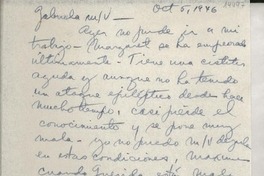 Oct 5, 1946
Gabriela m/V —
Ayer no pude ir a mi
trabajo — Margaret se ha empeorado
últimamente — Tiene una cistitis
aguda y aunque no ha tenido
un ataque epiléptico desde hace
mucho tiempo, casi pierde el
conocimiento y se pone muy
mala — yo no puedo m/V dejarla
en estas condiciones, maxime
cuando querida está mala